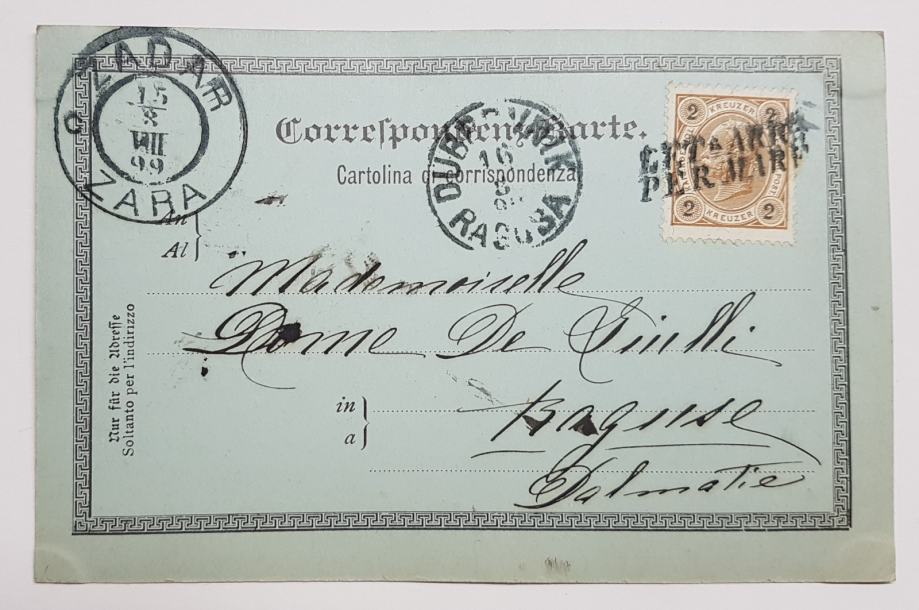 ZADAR
15
8
VIII
99
ZARA
Correspondenz-Karte.
Cartolina di corrispondenza
DUBROVNIK
16
8
RAGUSA
2 KREUZER 2
2 KREUZER 2
LETT. ARR.
PER MARE
An
Al
Mademoiselle
De
in
a
Raguse
Dalmatie
Nur für die Adresse
Soltanto per l'indirizzo